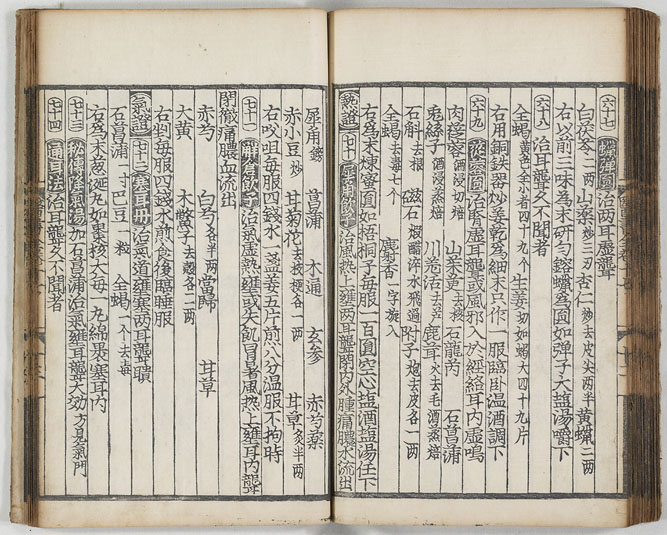 六十七 蠟彈圓 治兩耳虛聾
白茯苓二兩 山藥炒三刃 杏仁炒去皮尖兩半 黃蠟二兩
右以前三味為末研勻鎔蠟為圓如彈子大盐湯嚼下
六十八 治耳聾久不聞者
全蝎黃色全小者四十九个 生姜切如蝎大四十九片
右用銅鉄器炒至姜乾為細末只作一服臨卧温酒調下
六十九 蓯蓉圓 治腎虛耳聾或風邪入於經絡耳內虛鳴
肉蓯蓉酒浸切焙 山茱萸去核 石龍芮 石菖蒲
兎絲子酒浸蒸焙 川羗活去芦 鹿茸火去毛酒蒸焙
石斛去根 磁石煆醋淬水飛過 附子炮去皮各一兩
全蝎去毒七个 麝香一字旋入
右為末煉蜜圓如梧桐子每服一百圓空心盐酒盐湯任下
熱證 七十 犀角飲子 治風熱上壅兩耳聾閉內外腫痛膿水流出
犀角鎊 菖蒲 木通 玄參 赤芍藥
赤小豆炒 甘菊花去枝梗各一兩 甘草炙半兩
右㕮咀每服四錢水一盞姜五片煎八分温服不拘時
七十一 治氣虛熱壅或失飢冒暑風熱上壅耳內聾
閉徹痛膿血流出
赤芍 白芍各半兩 當歸 甘草
大黃 木鱉子去殼各一兩
右剉每服四錢水煎食後臨睡服
氣證 七十二 塞耳丹 治氣道壅塞兩耳聾聵
石菖蒲一寸 巴豆一粒 全蝎一个去毒
右為末葱涎丸如棗核大每一丸綿裹塞耳內
七十三 秘傳降氣湯 加石菖蒲治氣壅耳聾大効方見氣門
七十四 通耳法 治耳聾久不聞者